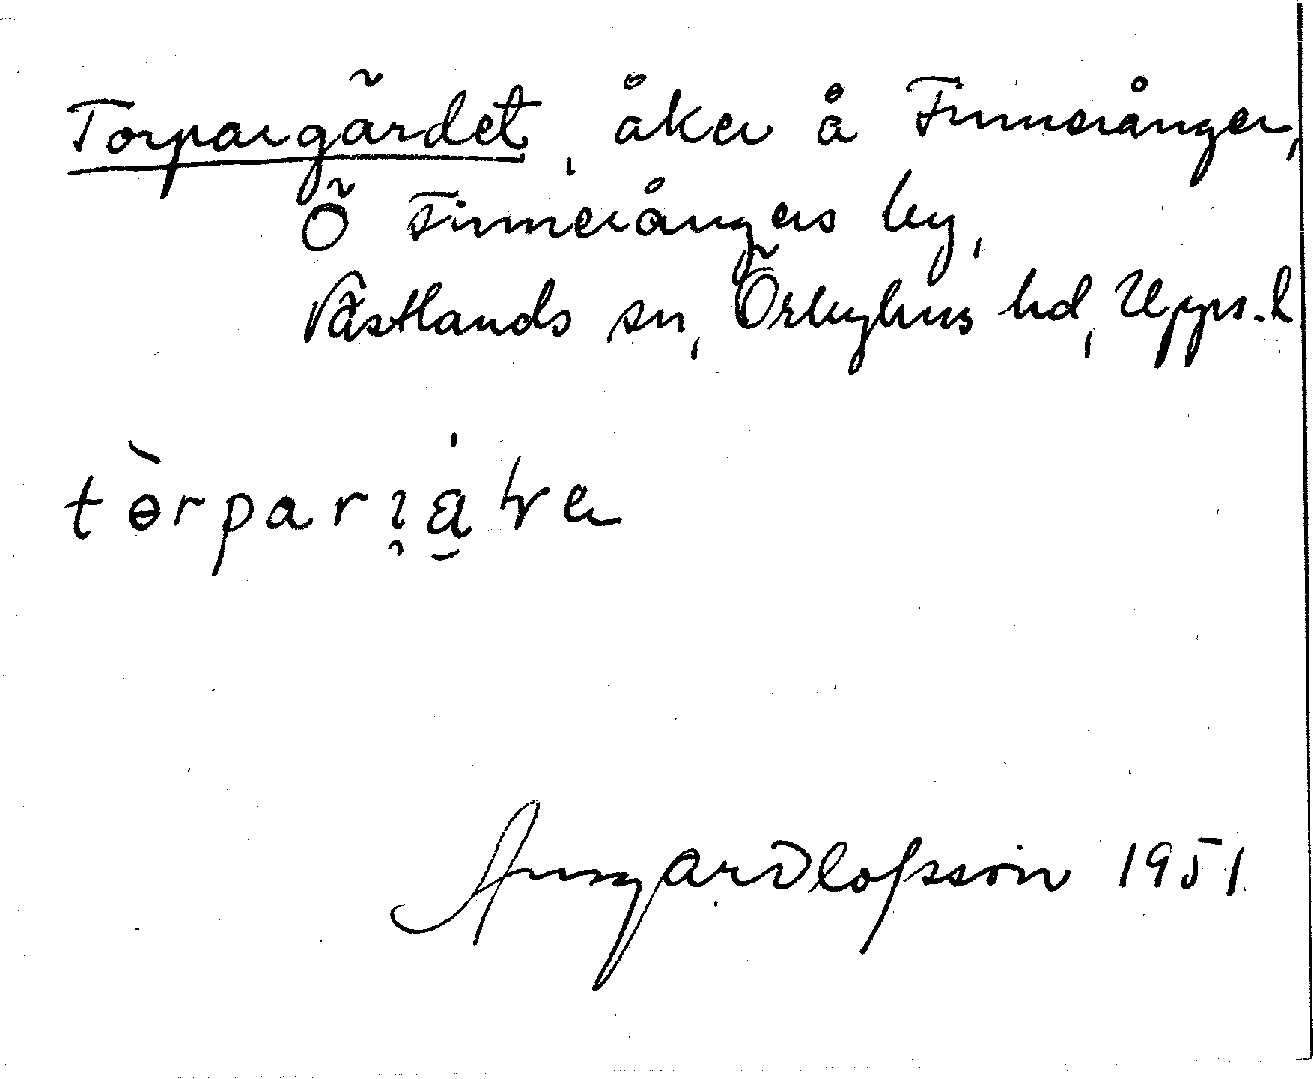 Torpargärdet, åker å Finnerånger,
Ö Finnerångers by,
Västlands sn, Örbyhus hd, Upps. l
Ansgar Olofsson 1951